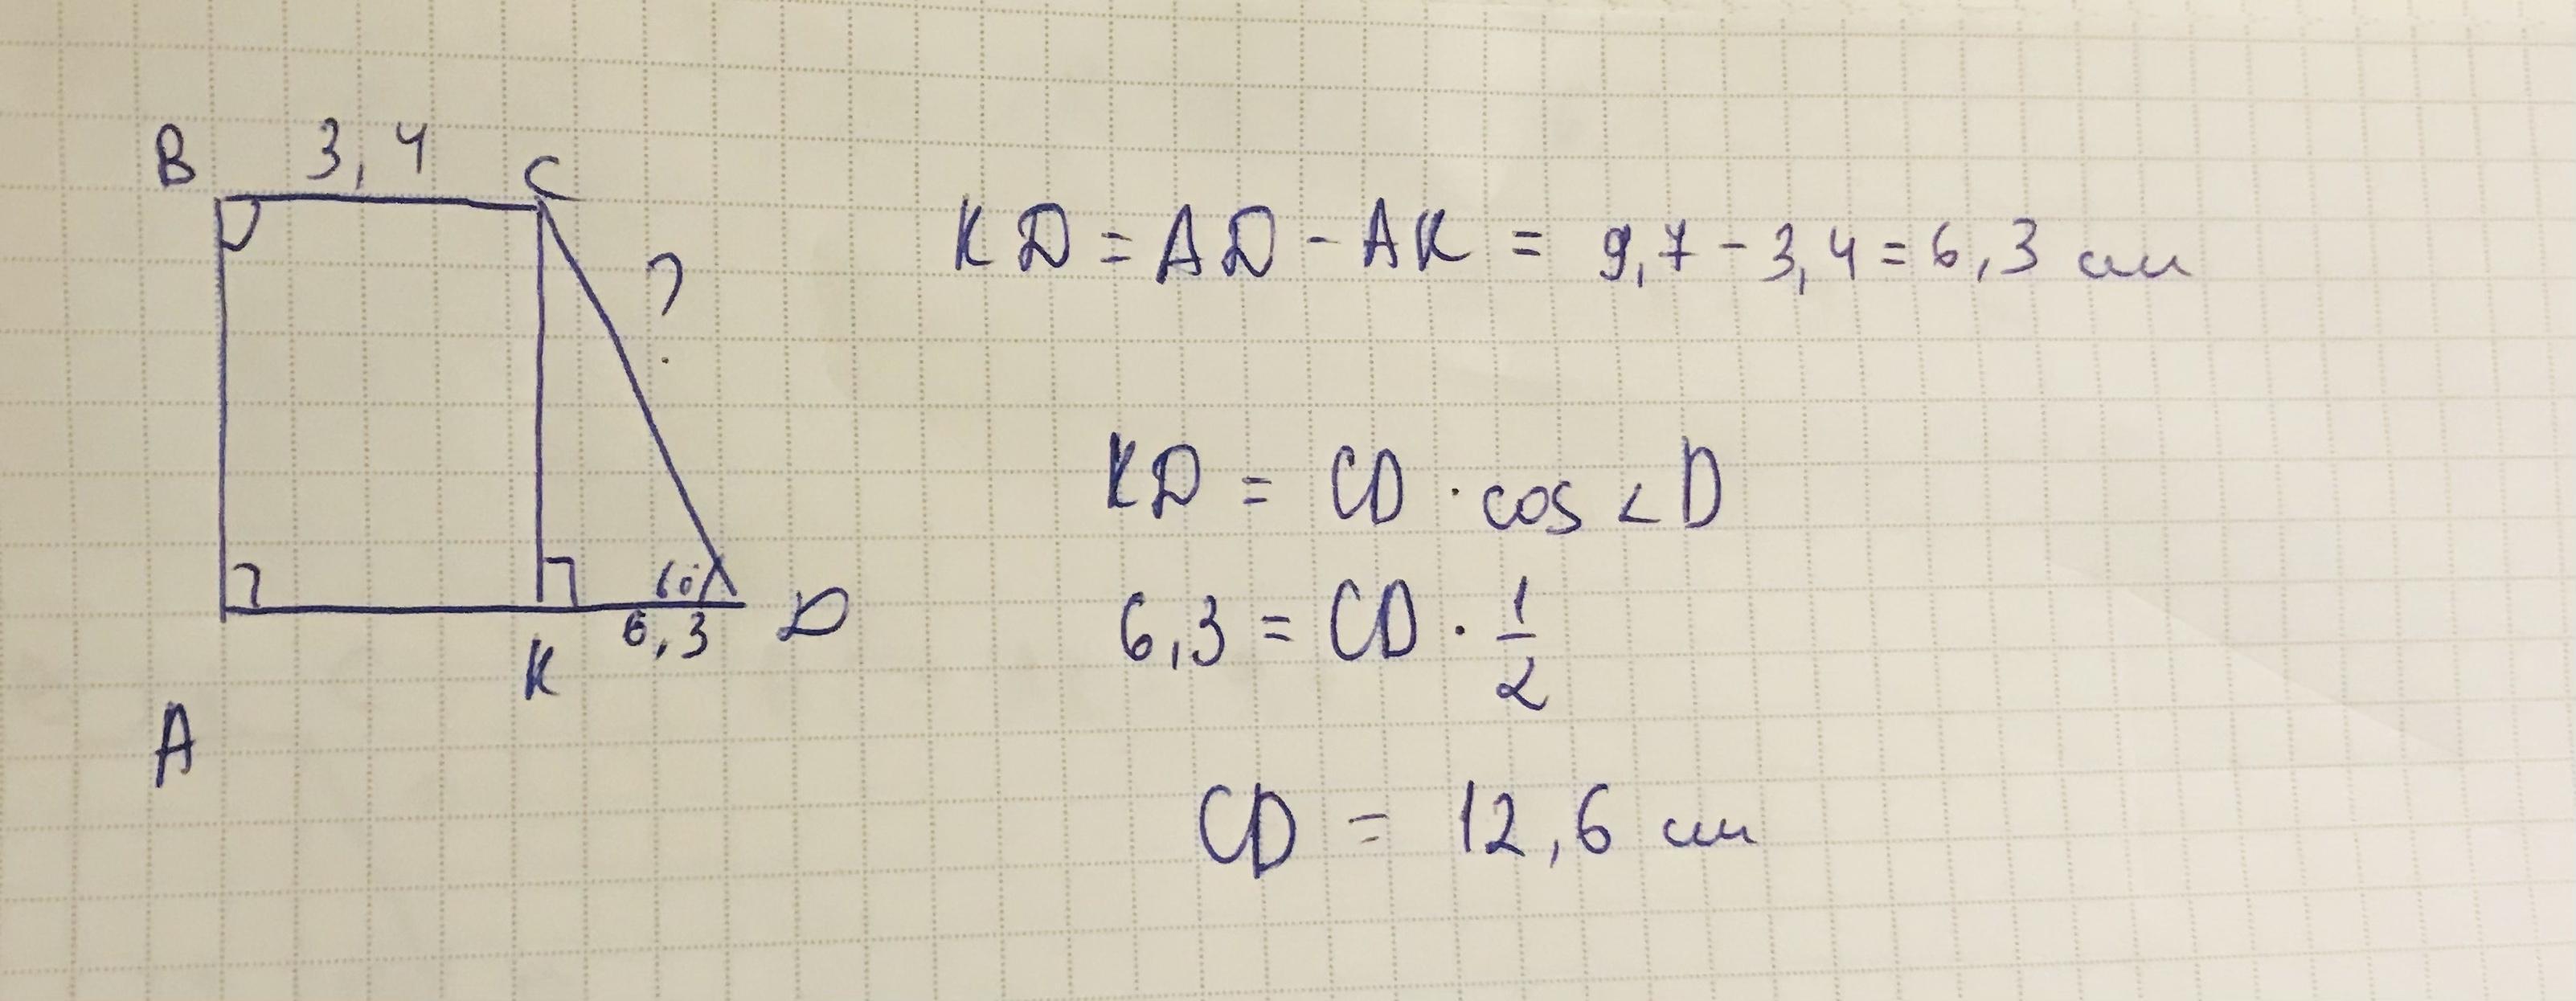 B 3,4 C
?
60°
6,3 D
K
A
KD = AD - AK = 9,7 - 3,4 = 6,3 см
KD = CD · cos ∠D
6,3 = CD · 1/2
CD = 12,6 см